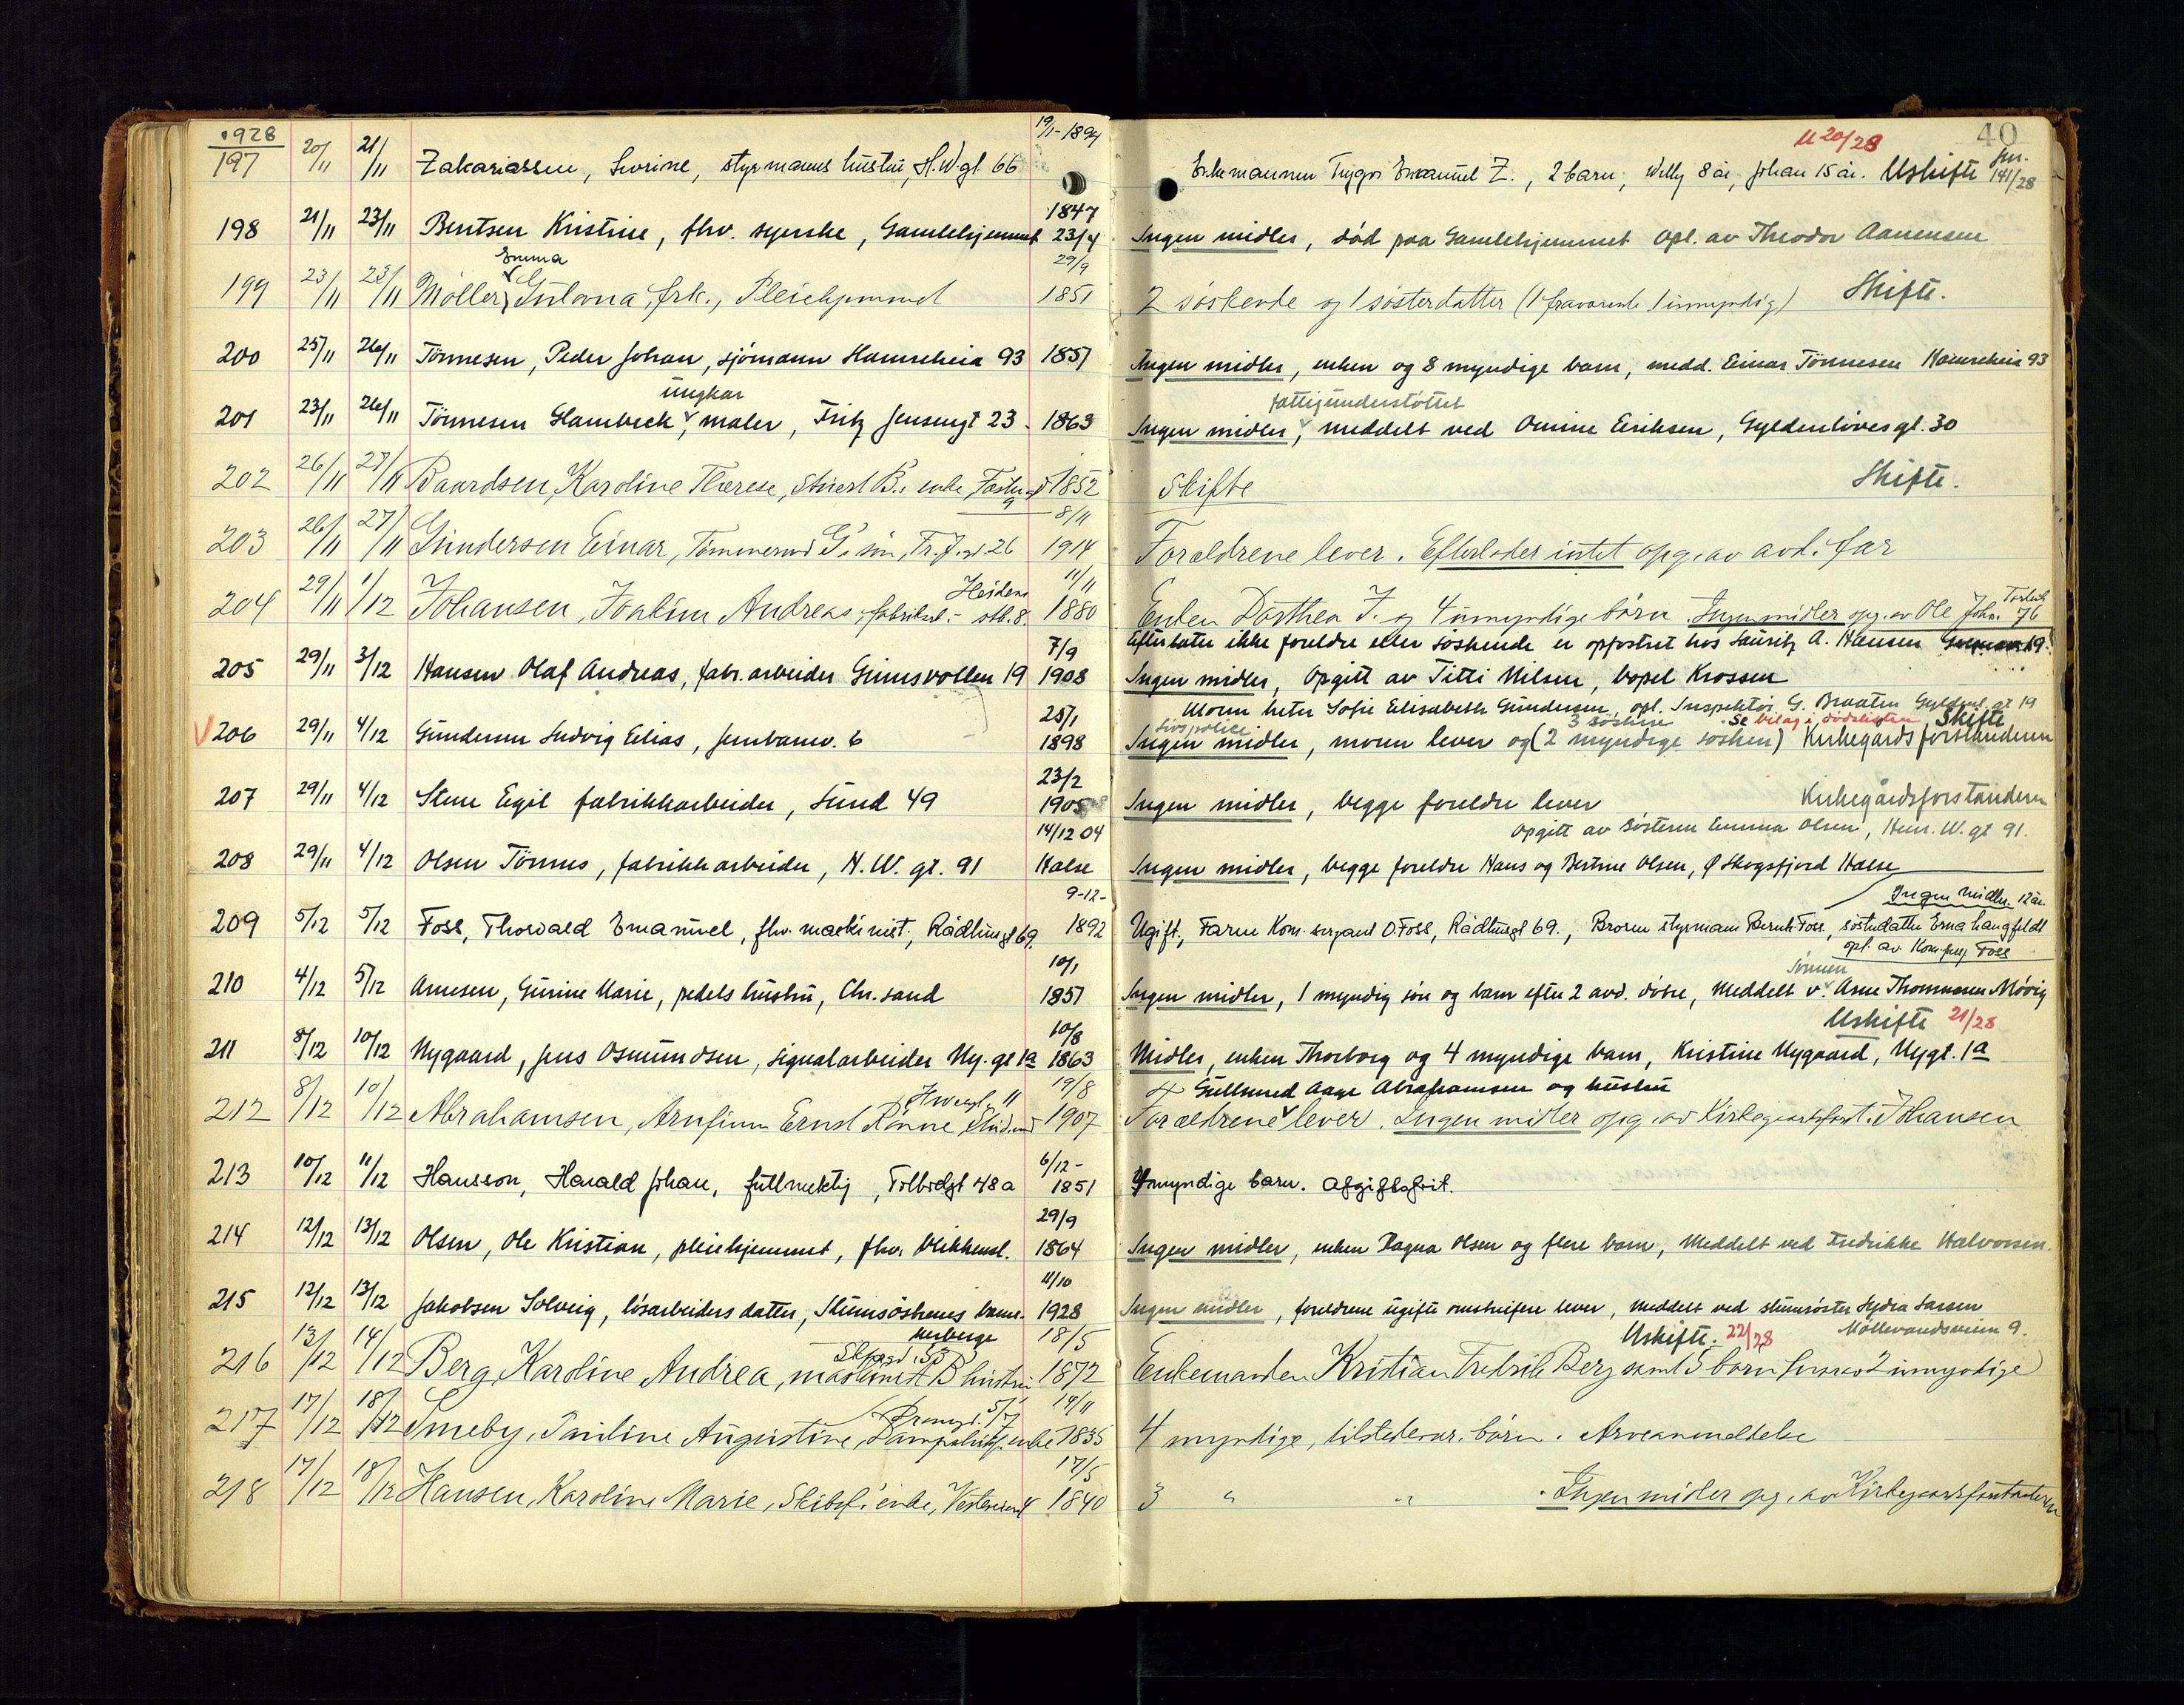 1928
40
197 20/11 21/11 Zakariassen, Severine, styrmanns hustru, H.W.gt 66 19/1-1894 Enkemannen Trygve Emanuel Z., 2 barn, Willy 8 år, Johan 15 år. Uskifte 141/28
U 20/28
198 21/11 23/11 Bentsen Kristine, fhv. syerske, Gamlehjemmet 1847 23/4 Ingen midler, død paa Gamlehjemmet opl. av Theodor Aanensen
Emma 29/9
199 23/11 23/11 Møller, frk., Pleiehjemmet 1851 2 søskende og 1 søsterdatter (1 fraværende 1 umyndig) Skifte.
200 25/11 26/11 Tønnesen, Peder Johan, sjømann Hamreheia 93 1851 Ingen midler, enken og 8 myndige barn, medd. Einar Tønnesen Hamreheia 93
ungkar fattigunderstøttet
201 23/11 26/11 Tønnesen Glambeck, maler, Fritz Jensengt 23 1863 Ingen midler, meddelt ved Omine Eriksen, Gyldenløvesgt. 30
202 26/11 27/11 Baardsen, Karoline Therese, B.s enke, 1852 Skifte Skifte.
8/11
203 26/11 27/11 Gundersen Einar, Tømmermd G's søn, Fr. J. gt 26 1914 Forældrene lever. Efterlader intet opg. av avd. far
11/11
204 29/11 1/12 Johansen, Joakim Andreas, fabrikarb. stb. 8. 1880 Enken Dorthea J. og 4 umyndige børn. Ingen midler opg. av Ole Joh. 76
7/9 Efterlater ikke foreldre eller søskende er opfostret hos Lauritz A. Hansen 19.
205 29/11 3/12 Hansen Olaf Andreas, fabr. arbeider Grimsvollen 19 1908 Ingen midler, Opgitt av Titti Nilsen, bopel Krossen
25/1 Moren heter Sofie Elisabeth Gundersen, opl. Inspektør G. Braaten Gyldenl. gt 19
Livspolice 3 søskene Se bilag i dødslisten Skifte
V 206 29/11 4/12 Gundersen Ludvig Elias, Jernbanev. 6 1898 Ingen midler, moren lever og (2 myndige søsken) Kirkegårdsforstanderen
23/2
207 29/11 4/12 Stene Egil fabrikkarbeider, Lund 49 1905 Ingen midler, begge foreldre lever Kirkegårdsforstanderen
14/12 04 Opgitt av søsteren Emma Olsen, Henr. W. gt 91.
208 29/11 4/12 Olsen Tønnes, fabrikkarbeider, H.W. gt. 91 Halse Ingen midler, begge foreldre Hans og Bertine Olsen, Ø Skogsfjord Halse
9-12- Ingen midler. 12 år.
209 5/12 5/12 Foss, Thorvald Emanuel, fhv. maskinist, Rådhusgt 69. 1892 Ugift, Faren Kom. sersjant O. Foss, Rådhusgt 69., Broren styrmann Bernh. Foss, søsterdatter Erna Langfeldt
opl. av Kom. serg Foss
10/1 Sønnen
210 4/12 5/12 Arnesen, Gurine Marie, pedels hustru, Chr.sand 1851 Ingen midler, 1 myndig søn og barn efter 2 avd. døtre, Meddelt v. Arne Thommesen Møvig
10/8 Uskifte 21/28
211 8/12 10/12 Nygaard, Jens Osmundsen, signalarbeider Ny. gt 1a 1863 Midler, enken Thorborg og 4 myndige barn, Kristine Nygaard, Nygt. 1a
19/8 Gullsmed Aage Abrahamsen og hustru
212 8/12 10/12 Abrahamsen, Arnfinn Ernst Rønne 1907 Forældrene lever. Ingen midler opg. av Kirkegaardsforst. Johansen
6/12-
213 10/12 11/12 Hansson, Harald Johan, fullmektig, Tolbodgt 48a 1851 4 myndige barn. Afgiftsfrit.
29/9
214 12/12 13/12 Olsen, Ole Kristian, pleiehjemmet, fhv. blikkensl. 1864 Ingen midler, enken Dagna Olsen og flere barn, Meddelt ved Fredrikke Halvorsen.
4/10
215 12/12 13/12 Jakobsen Solveig, løsarbeiders datter, Slumsøstrenes barne- 1928 Ingen midler, foreldrene ugifte omstreifere lever, Meddelt ved slumsøster Lydia Larsen
herberge 18/5 Uskifte. 22/28 Møllevandsveien 9.
216 13/12 14/12 Berg, Karoline Andrea, maskinist B hustru 1872 Enkemanden Kristian Fredrik Berg samt 5 børn hvorav 2 umyndige
19/11
217 17/12 18/12 Smeby, Pauline Augustine, enke 1835 4 myndige, tilstedevær. børn. Arveanmeldelse
17/5
218 17/12 18/12 Hansen, Karoline Marie, Skibsf. enke, 1840 3 " " Ingen midler opg. av Kirkegaardsforstanderen